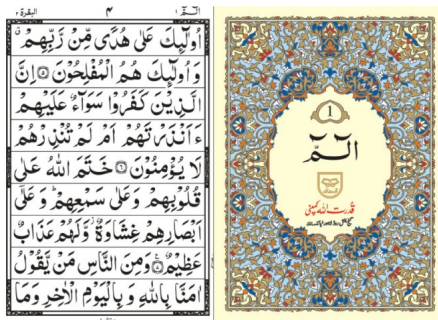 البقرة ٢
۴
الٓمّٓ ١
اُولٰٓئِكَ عَلٰى هُدًى مِّنْ رَّبِّهِمْ ۗ
وَاُولٰٓئِكَ هُمُ الْمُفْلِحُوْنَ ۝۵ اِنَّ
الَّذِيْنَ كَفَرُوْا سَوَآءٌ عَلَيْهِمْ
ءَاَنْذَرْتَهُمْ اَمْ لَمْ تُنْذِرْهُمْ
لَا يُؤْمِنُوْنَ ۝۶ خَتَمَ اللّٰهُ عَلٰى
قُلُوْبِهِمْ وَعَلٰى سَمْعِهِمْ ؕ وَعَلٰٓى
اَبْصَارِهِمْ غِشَاوَةٌ ؗ وَّلَهُمْ عَذَابٌ
عَظِيْمٌ ۝۷ وَمِنَ النَّاسِ مَنْ يَّقُوْلُ
اٰمَنَّا بِاللّٰهِ وَبِالْيَوْمِ الْاٰخِرِ وَمَا
1
الٓمّٓ
قدرت اللہ کمپنی